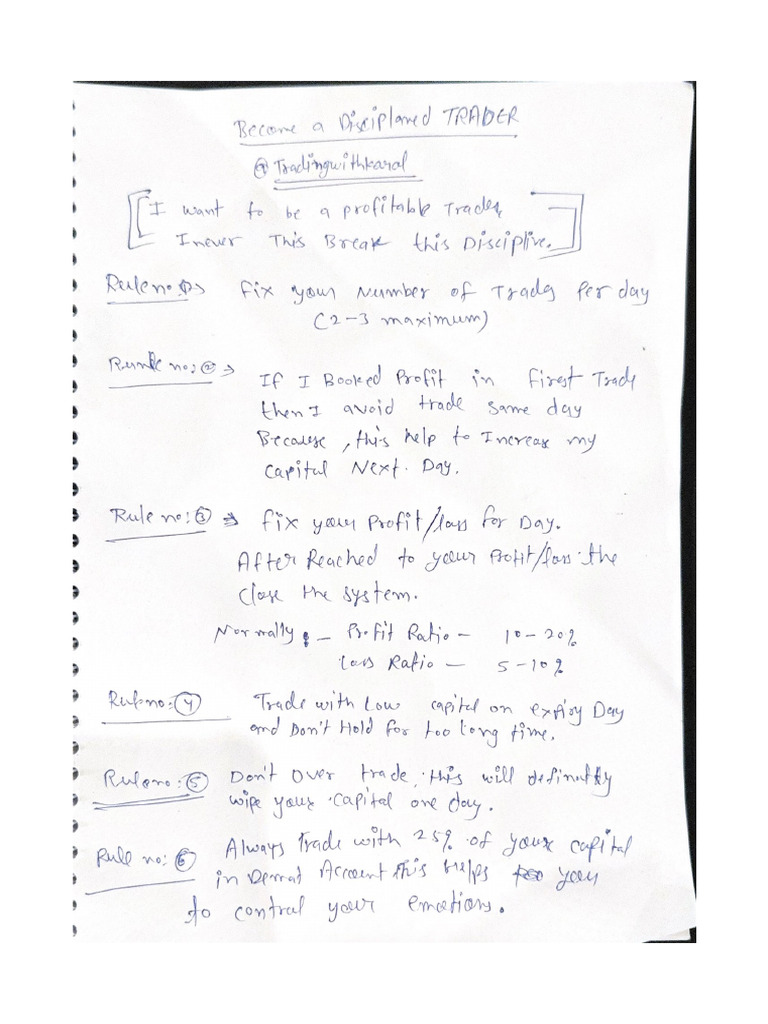 Become a Disciplaned TRADER
@Tradingwithkaral
[I want to be a profitable Trader
I never This Break this Discipline.]
Rule no: 1 → Fix your Number of Trades Per day
(2-3 maximum)
Runle no: 2 → If I Booked Profit in First Trade
then I avoid trade same day
Because, this help to Increase my
capital Next Day.
Rule no: 3 → Fix your Profit/loss for Day.
After Reached to your Profit/loss the
close the system.
Normally :- Profit Ratio - 10-20%
Loss Ratio - 5-10%
Rule no: 4 Trade with Low capital on expiry Day
and Don't Hold for too long time.
Rule no: 5 Don't Over trade, this will definatly
wipe your capital one day.
Rule no: 6 Always Trade with 25% of your capital
in Demat Account this helps you
to control your emotions.